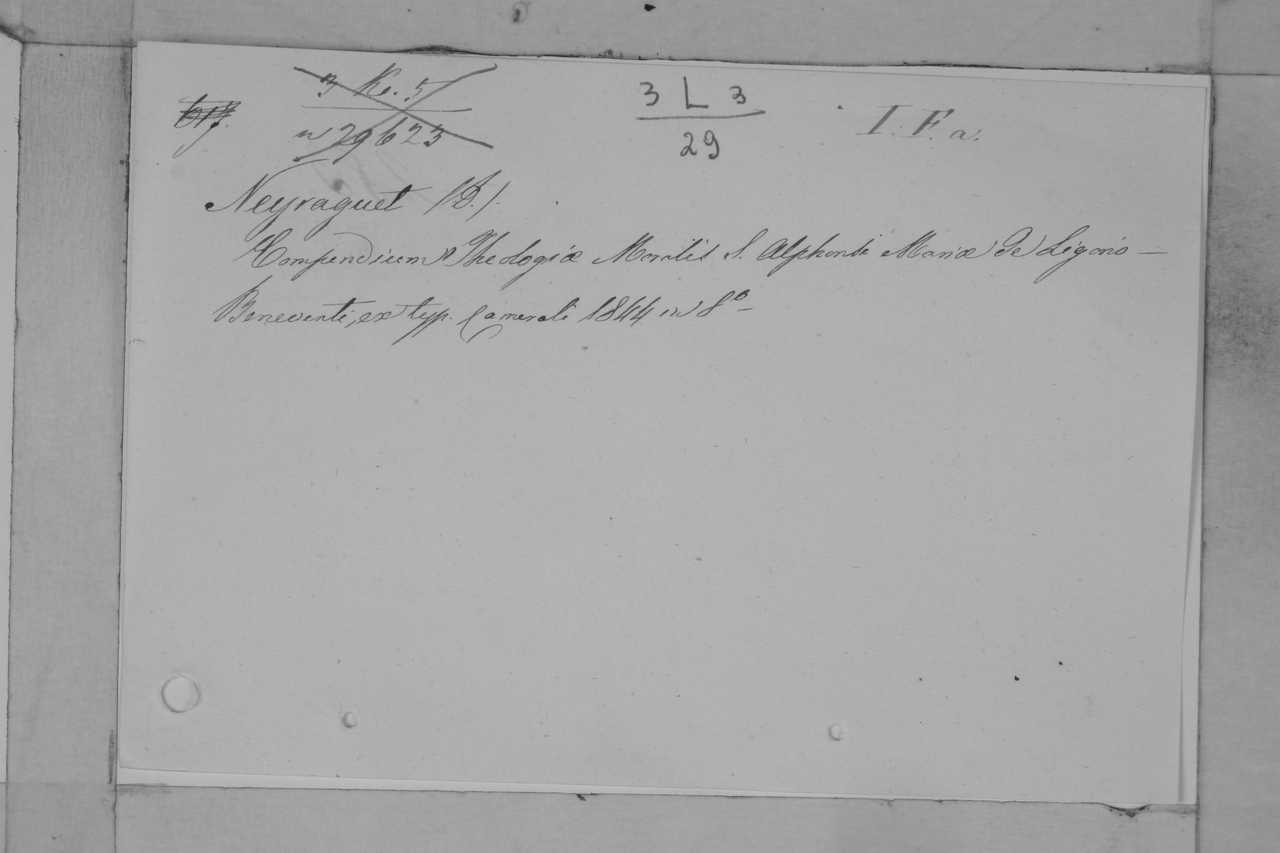 3 K. 5
n 29623
3 L 3
29
I. F. a.
Neyraguet (D.).
Compendium Theologiæ Moralis S. Alphonsi Mariæ De Ligorio —
Beneventi, ex typ. Camerali 1844 in 8º —